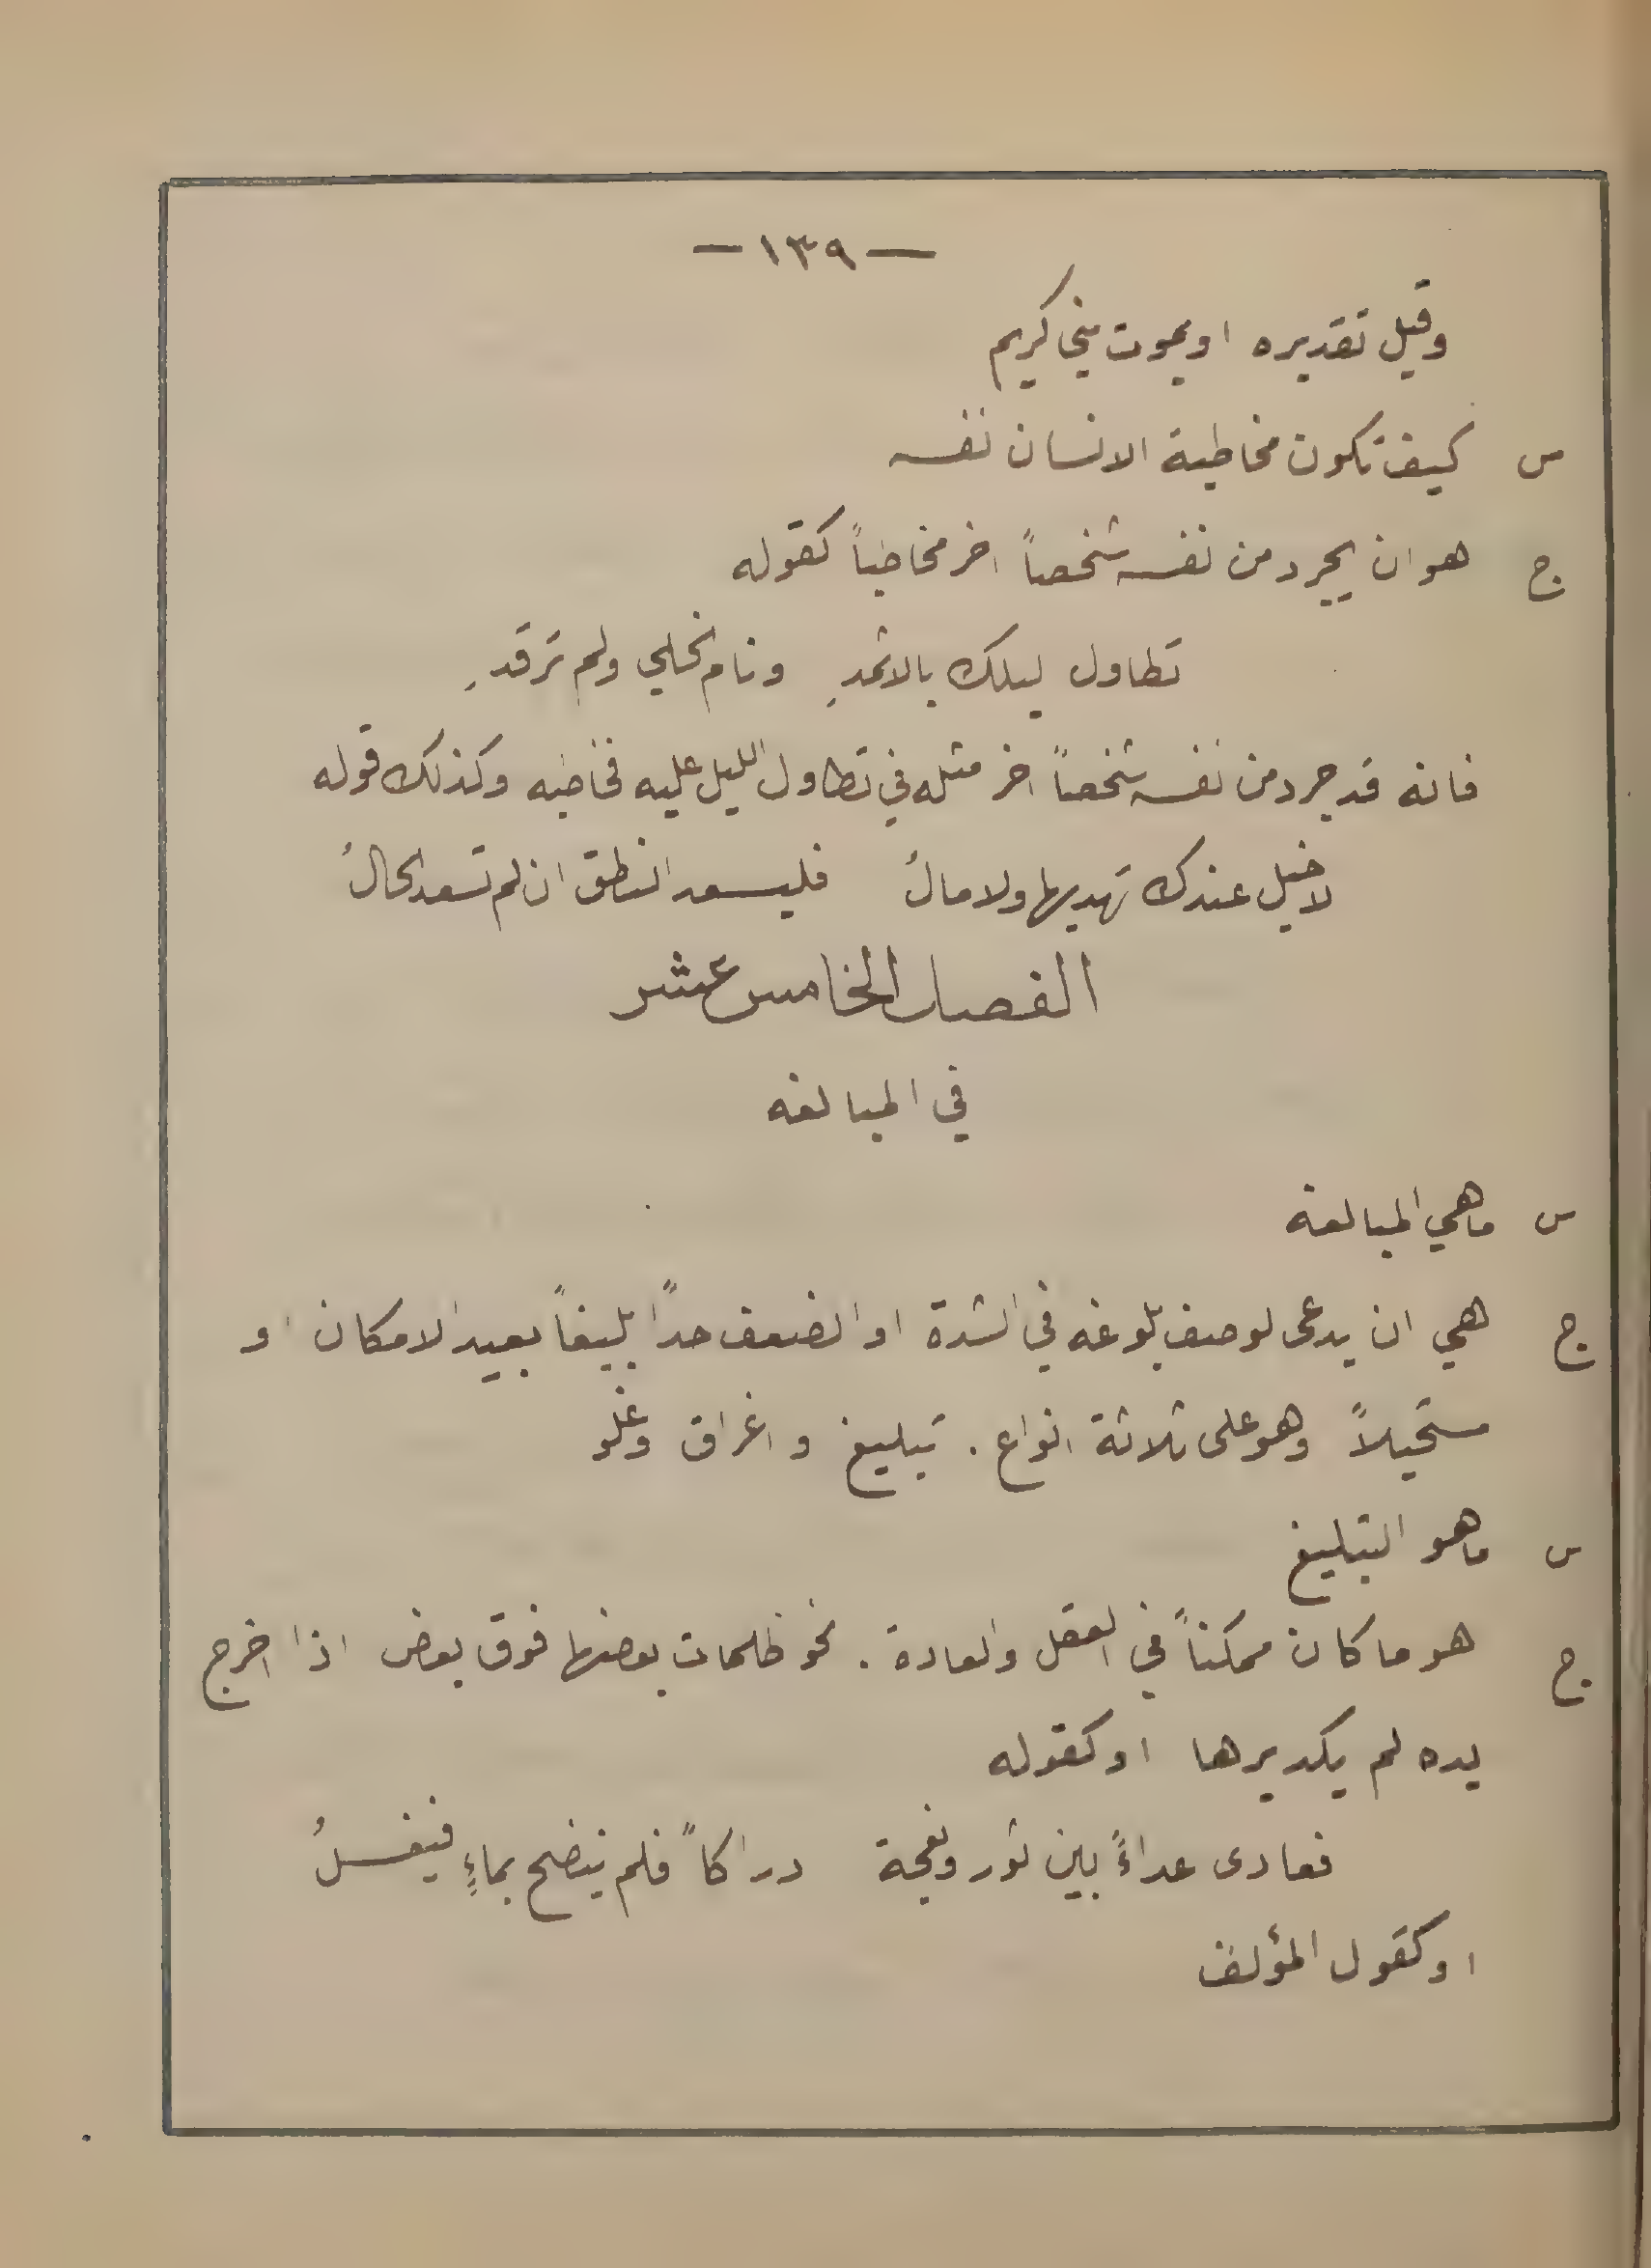 — ١٣٩ —
وقيل تقديره او يموت مني كريم
س كيف تكون مخاطبة الانسان نفسه
ج هو ان يجرد من نفسه شخصاً اخر مخاطباً كقوله
تطاول ليلك بالاثمدِ ونام الخلي ولم ترقدِ
فانه قد جرد من نفسه شخصاً اخر مثله في تطاول الليل عليه فخاطبه وكذلك قوله
لا خيل عندك تهديها ولا مالُ فليسعد النطق ان لم تسعد الحالُ
الفصل الخامس عشر
في المبالغه
س ما هي المبالغة
ج هي ان يدعى لوصف بلوغه في الشدة او الضعف حدًا بليغاً بعيد الامكان او
مستحيلاً وهو على ثلاثة انواع . تبليغ و اغراق وغلو
س ما هو التبليغ
ج هو ما كان ممكناً في العقل والعادة . نحو ظلمات بعضها فوق بعض اذا اخرج
يده لم يكد يرها او كقوله
فعادى عداءً بين ثور ونعجة دراكاً فلم ينضح بماءٍ فيغسلُ
او كقول المؤلف